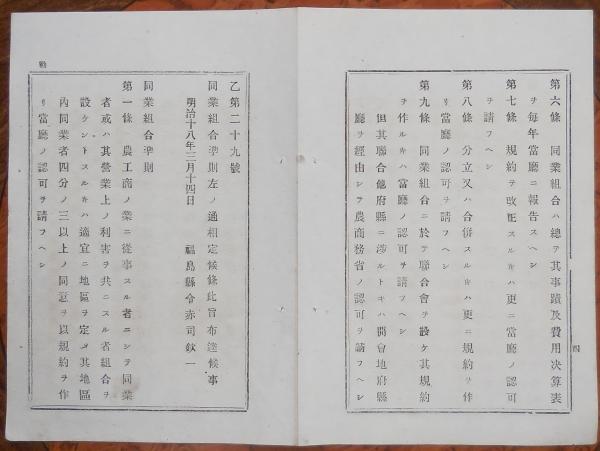 第六條 同業組合ハ總テ其事蹟及費用決算表
ヲ每年當廳ニ報告スヘシ
第七條 規約ヲ改正スルキハ更ニ當廳ノ認可
ヲ請フヘシ
第八條 分立又ハ合併スルキハ更ニ規約ヲ作
リ當廳ノ認可ヲ請フヘシ
第九條 同業組合ニ於テ聯合會ヲ設ケ其規約
ヲ作ルキハ當廳ノ認可ヲ請フヘシ
但其聯合他府縣ニ涉ルトキハ開會地府縣
廳ヲ經由シテ農商務省ノ認可ヲ請フヘシ
四
乙第二十九號
同業組合準則左ノ通相定候條此旨布達候事
明治十八年三月十四日 福島縣令赤司欽一
同業組合準則
第一條 農工商ノ業ニ從事スル者ニシテ同業
者或ハ其營業上ノ利害ヲ共ニスル者組合ヲ
設ケントスルキハ適宜ニ地區ヲ定メ其地區
內同業者四分ノ三以上ノ同意ヲ以規約ヲ作
リ當廳ノ認可ヲ請フヘシ